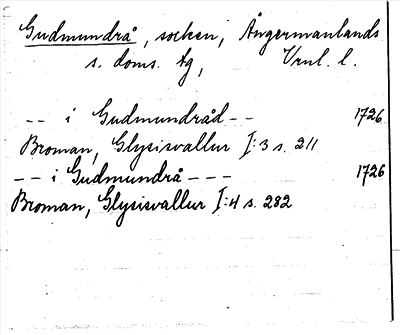 Gudmundrå, socken, Ångermanlands
s. doms. hg, Vrnl. l.
-- i Gudmundråd -- 1726
Broman, Glysisvallur I:3 s. 211
-- i Gudmundrå --- 1726
Broman, Glysisvallur I:4 s. 282